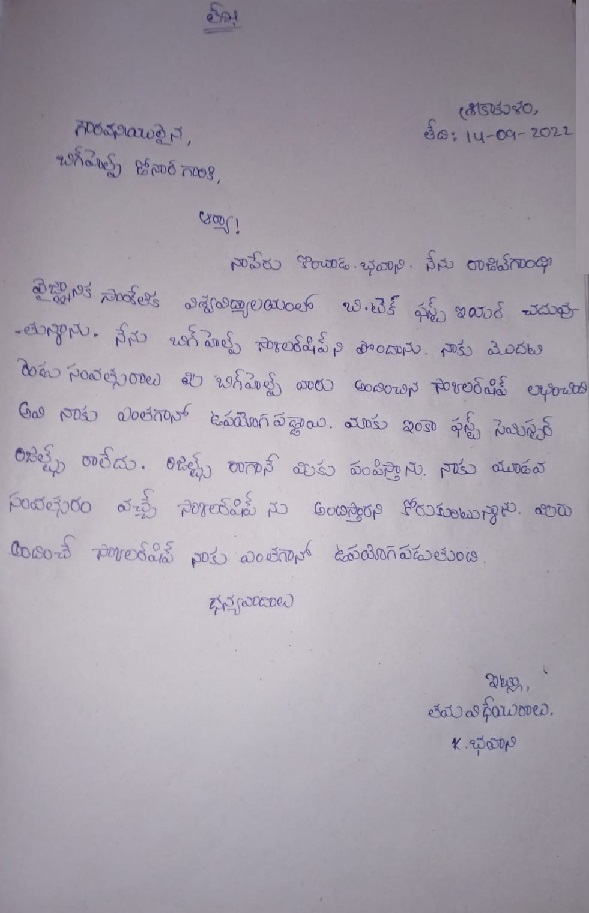 లేఖ
శ్రీకాకుళం,
తేది: 14-09-2022
గౌరవనీయులైన,
బిగ్‌హెల్ప్ డోనార్ గారికి,
ఆర్యా!
నాపేరు కొంచాడ. భవాని. నేను రాజీవ్‌గాంధీ
వైజ్ఞానిక సాంకేతిక విశ్వవిద్యాలయంలో బి.టెక్ ఫస్ట్ ఇయర్ చదువు
-తున్నాను. నేను బిగ్‌హెల్ప్ స్కాలర్‌షిప్ ని పొందాను. నాకు మొదటి
రెండు సంవత్సరాలు మీ బిగ్‌హెల్ప్ వారు అందించిన స్కాలర్‌షిప్ లభించింది
అవి నాకు ఎంతగానో ఉపయోగపడ్డాయి. మాకు ఇంకా ఫస్ట్ సెమిస్టర్
రిజల్ట్స్ రాలేదు. రిజల్ట్స్ రాగానే మీకు పంపిస్తాను. నాకు మూడవ
సంవత్సరం వచ్చే స్కాలర్‌షిప్ ను అందిస్తారని కోరుకుంటున్నాను. మీరు
అందించే స్కాలర్‌షిప్ నాకు ఎంతగానో ఉపయోగపడుతుంది.
ధన్యవాదాలు
ఇట్లు,
తమ విధేయురాలు.
K. భవాని